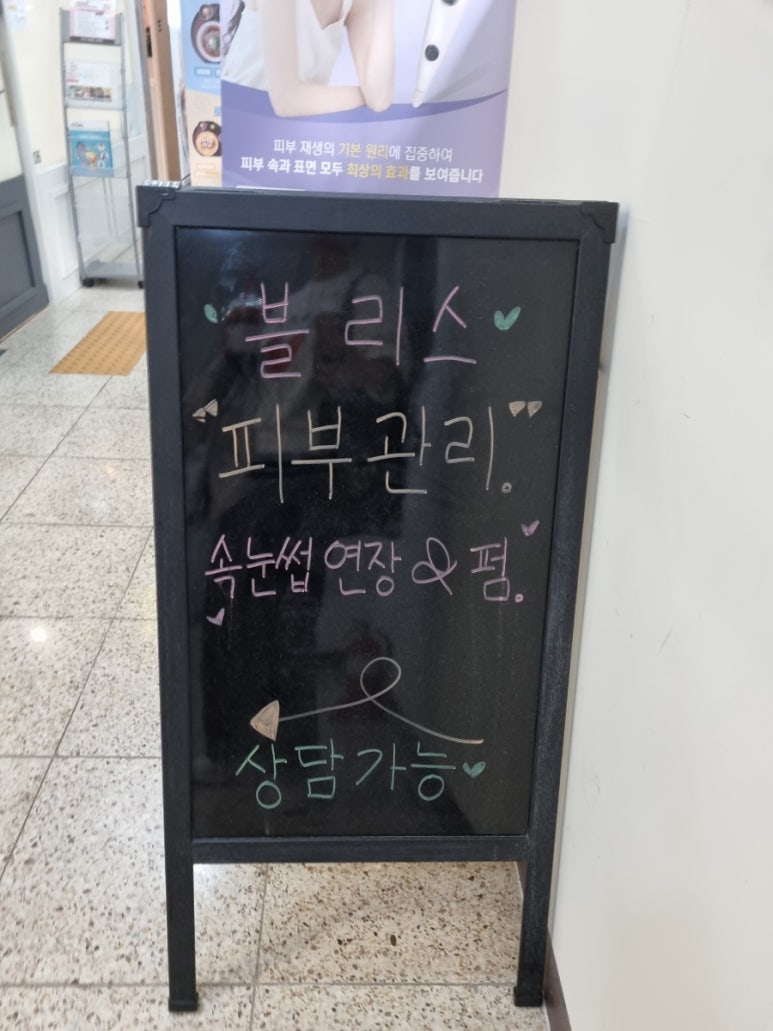 피부 재생의 기본 원리에 집중하여
피부 속과 표면 모두 최상의 효과를 보여줍니다
블리스
"피부관리."
속눈썹 연장 & 펌.
상담가능